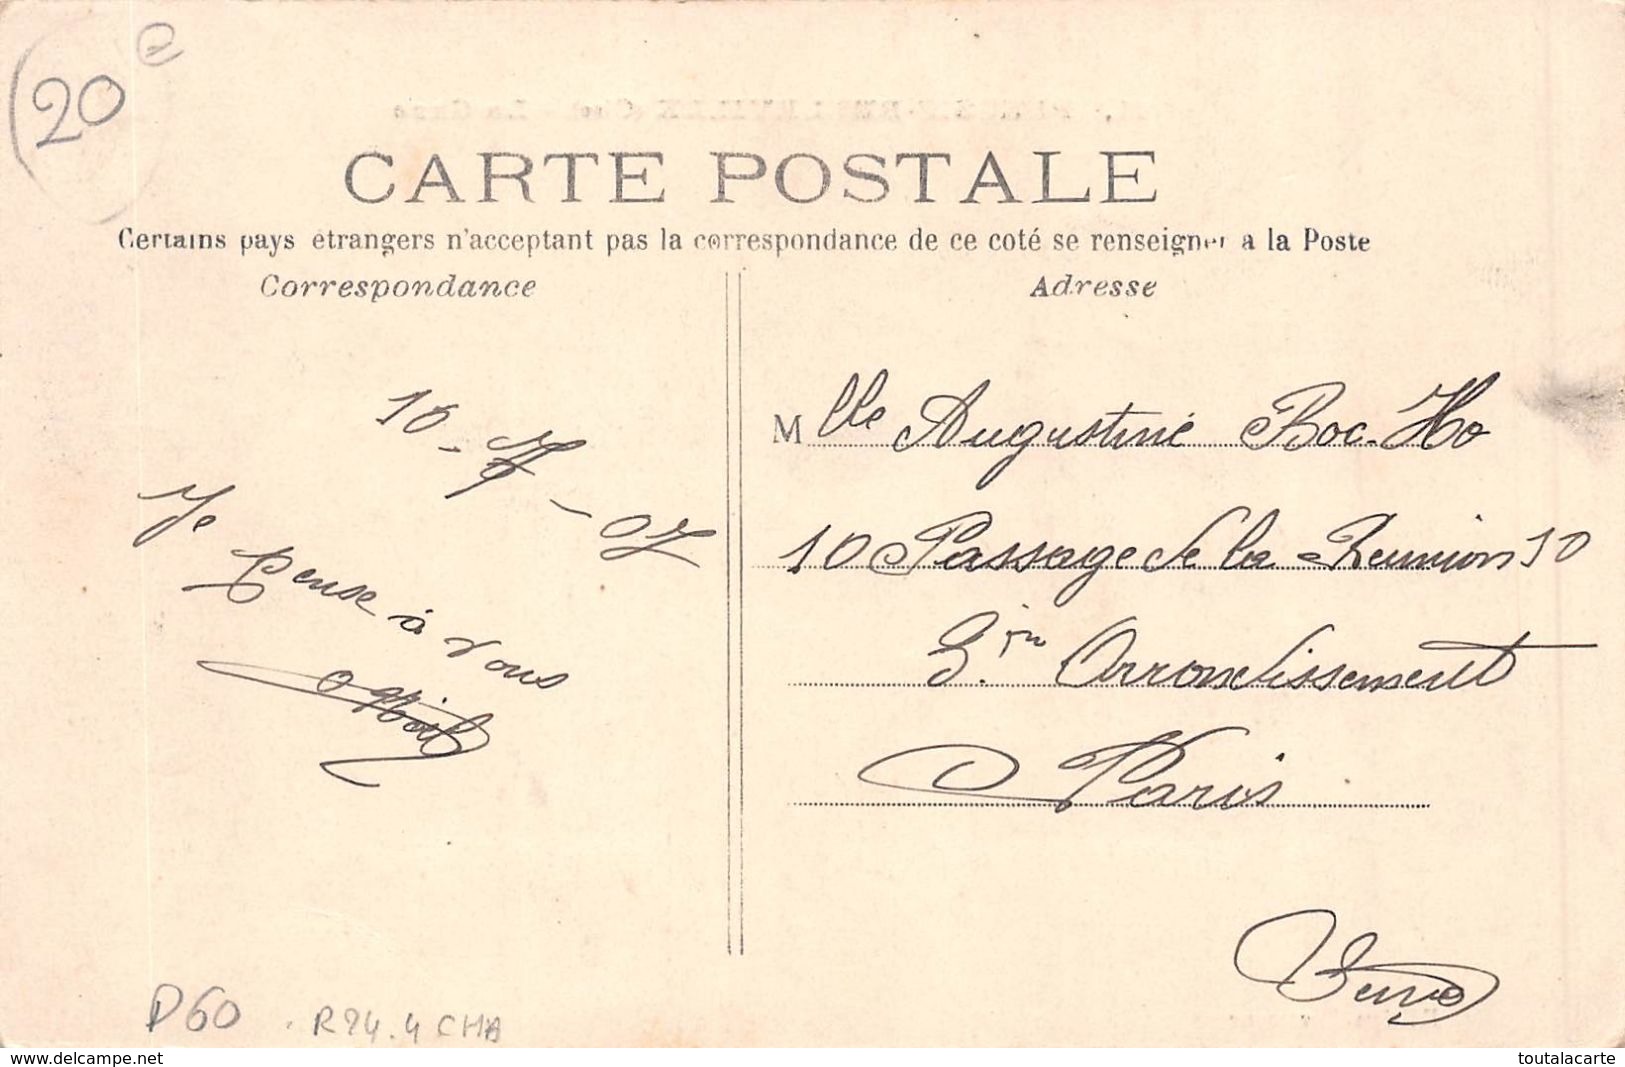 20 e
CARTE POSTALE
Certains pays etrangers n'acceptant pas la correspondance de ce coté se renseigner a la Poste
Correspondance
10-7-07
Je
pense à vous
Adresse
Mlle Augustine Boc-Ho
10 Passage de la Reunion 10
3.im Arrondissement
Paris
Seine
D60 . R24.4 CHA
www.delcampe.net
toutalacarte